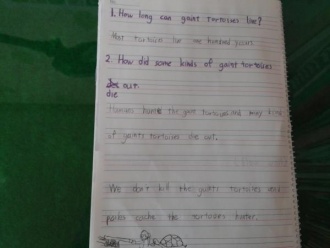 1. How long can gaint tortoises live?
that tortoises live one hundred years.
2. How did some kinds of gaint tortoises
out.
die
Humans the gaint tortoises and many kind
of gaints tortoises die out.
We don't kill the gaints tortoises and
the tortoises hunter.